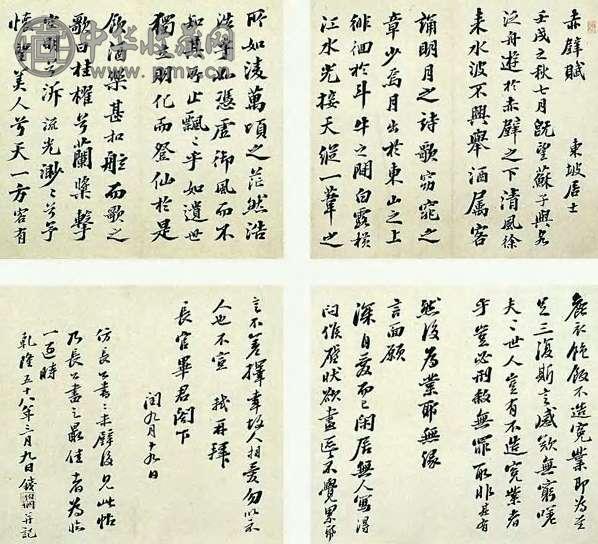 赤壁賦 東坡居士
壬戌之秋七月既望蘇子與客
泛舟遊於赤壁之下清風徐
来水波不興舉酒属客
誦明月之詩歌窈窕之
章少焉月出於東山之上
徘徊於斗牛之間白露橫
江水光接天縱一葦之
所如凌萬頃之茫然浩
浩乎如憑虛御風而不
知其所止飄〻乎如遺世
獨立羽化而登仙於是
飲酒樂甚扣舷而歌之
歌曰桂櫂兮蘭槳擊
空明兮泝流光渺〻兮予
懷望美人兮天一方客有
衣飽飯不造寃業即為至
足三復斯言感歎無窮嗟
夫世人豈有不造寃業者
乎豈必刑殺無罪取非其有
然後為業耶無緣
言面願
深自愛而已閑居無人寫得
問候啓狀欲盡區〻不覺累幅
言不甚擇幸故人相愛勿以示
人也不宣 軾再拜
長官畢君閣下
閏九月十九日
仿長公書赤壁後見此帖
乃長公書之最佳者為臨
一過時
乾隆五十八年三月九日錢伯坰并記
中华收藏网